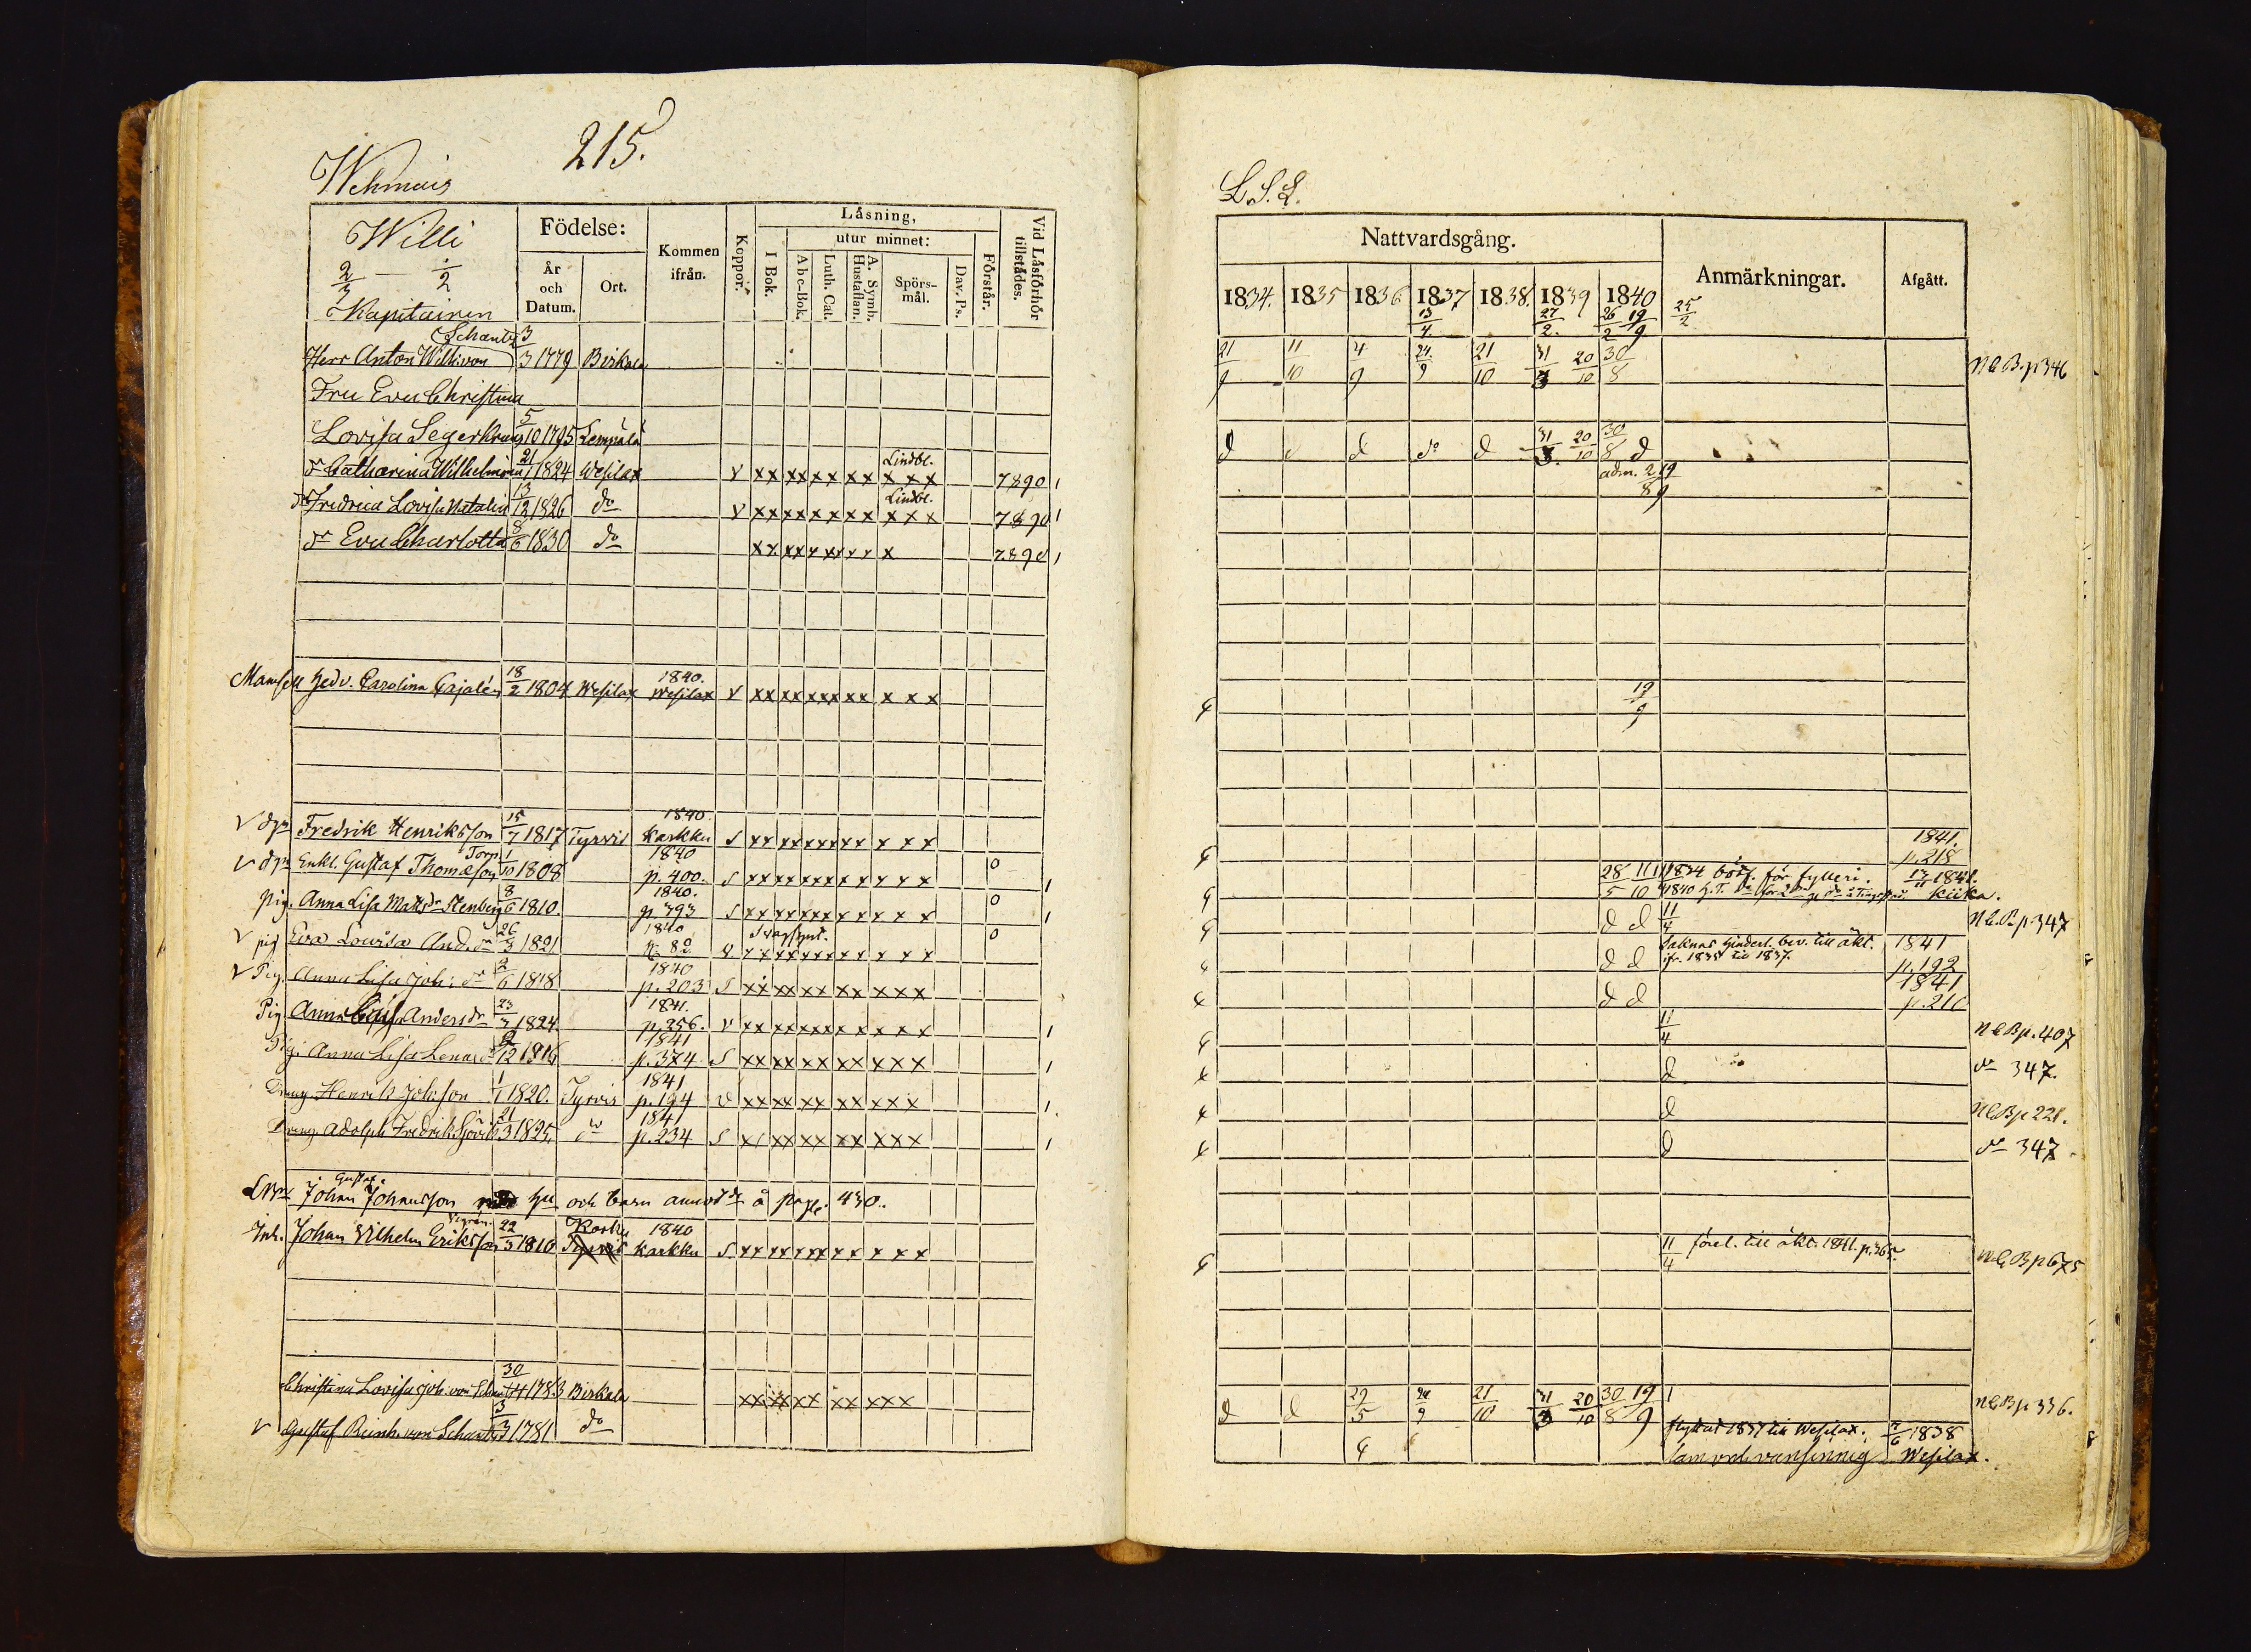 215.
Wehmais
Willi
2/3 — ./2
Kapitainen
Födelse:
År och Datum.
Ort.
Kommen ifrån.
Koppor.
Läsning,
utur minnet:
I Bok.
Abc-Bok.
Luth. Cat.
A. Symb. Hustaflan.
Spörs-mål.
Dav. Ps.
Förstår.
Vid Läsförhör tillstådes.
Schantz
Herr Anton Willi von 3/3 1779 Birkala
Fru Eva Christina
Lovisa Segerkrantz 5/10 1795 Lempälä
Lindbl.
dr Catharina Wilhelmina 21/1 1824 Wesilax v xx xx xx xx x x x 7890 1
Lindbl.
dr Fredrica Lovisa Natalia 13/12 1826 do v xx xx xx xx x x x 7890 1
dr Eva Charlotta 8/6 1830 do xx xx x xx x x x 7.890 1
Mamsell Hedv. Carolina Cajalén 18/2 1804 Wesilax 1840. Wesilax v xx xx xxx xx x x x
v dgn Fredrik Henriksson 15/7 1817 Tyrvis 1840 Karkku s xx xx xx xx x x x
v dgn Enkl. Gustaf Thomasson Torp. 1/10 1808 1840 p. 400. s xx xx xx x x x x x 0 1
Pig. Anna Lisa Matsdr Stenberg 8/6 1810. 1840. p. 393 s xx xx xx x x x x x 0 1
v pig Eva Lovisa And. dr 26/3 1821 1840 p. 82 v x x xx xx x x x x x 0
Svagsynt.
v Pig. Anna Lisa Joh: dr 2/6 1818 1840 p. 203 s xx xx xx xx xxx
Pig Anna Caisa Andersdr 23/3 1824 1841. p. 256. v xx xx xx x x x x x 1
Pig. Anna Lisa Lenasdr 2/12 1816 1841 p. 374 s xx xx xx xx xxx 1
Dreng Henrik Johsson 1/1 1820. Tyrvis 1841 p. 194 v xx xx xx xx xxx 1.
Dreng. Adolph Fredrik Sjövik 21/3 1825 do 1841 p. 234 s x/ xx xx xx xxx 1
Gustaf
Johan Johansson hu och barn annot. å page 430.
Inh. Johan Vilhelm Eriksson 22/3 1810 Karku Tyrvis 1840 Karkku s xx xx xx x x x x x
Christina Lovisa Joh: von Schantz 30/4 1783 Birkala xx xx xx xx xxx
v Gustaf Reinh. von Schantz 3/3 1781 do
L.S.L.
Nattvardsgång.
Anmärkningar.
Afgått.
1834. 1835 1836 1837 1838. 1839 1840
13/4. 27/2. 26/2 19/9 25/2
21/9 11/10 4/9 24/9 21/10 31/3 20/10 30/8 NCB. p 346
d d d do d 31/3. 20/10 30/8 d
adm. 2/8 19/9
19/9
1841.
p. 218
28/5 11/10 1834 böt. för fylleri. 13/11 1841.
1840 Kiika.
d d 11/4 NCB p 347
Saknar hinderl. bev. till äkt. 1841
d d ifr. 1835 till 1837. p. 192
1841
d d p. 216
11/4 NCBp. 407
d do 347.
d NCBp 221.
d do 347.
11/4 förel. till äkt. 1841. p. 365. NCBp 675
d d 29/5 24/9 21/10 31/3 20/10 30/8 19/9 1 NCBp 336.
flyttat 1837 till Wesilax. 7/6 1838
lam och vansinnig Wesilax.